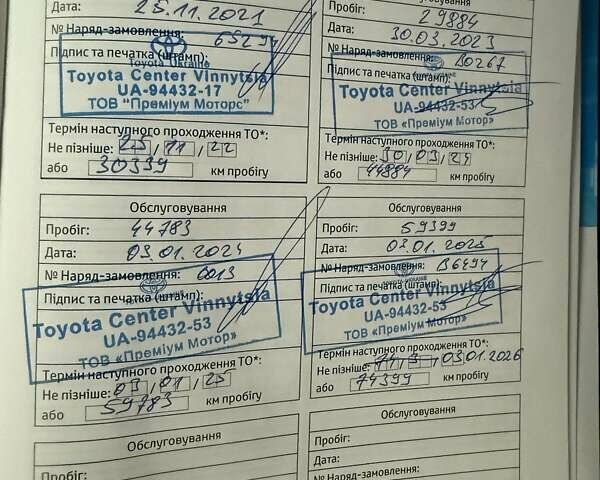 Дата: 25.11.2021
№ Наряд-замовлення: 65294
Підпис та печатка (штамп):
Toyota Ukraine
Toyota Center Vinnytsia
UA-94432-17
ТОВ "Преміум Моторс"
Термін наступного проходження ТО*:
Не пізніше: 25, 11, 22
або 30339 км пробігу
Обслуговування
Пробіг: 29884
30.03.2023
№ Наряд-замовлення: В0267
Підпис та печатка (штамп):
Toyota Center Vinnytsia
UA-94432-53
ТОВ «Преміум Мотор»
Термін наступного проходження ТО*:
Не пізніше: 30, 03, 24
або 44884 км пробігу
Обслуговування
Пробіг: 44783
Дата: 03.01.2024
№ Наряд-замовлення: 0013
Підпис та печатка (штамп):
Toyota Center Vinnytsia
UA-94432-53
ТОВ «Преміум Мотор»
Термін наступного проходження ТО*:
Не пізніше: 03, 01, 25
або 59783 км пробігу
Обслуговування
Пробіг: 59399
Дата: 03.01.2025
№ Наряд-замовлення: В6494
Підпис та печатка (штамп):
Toyota Center Vinnytsia
UA-94432-53
ТОВ «Преміум Мотор»
Термін наступного проходження ТО*:
Не пізніше: 03.01.2026
або 74399 км пробігу
Обслуговування
Пробіг:
Пробіг:
Дата:
№ Наряд-замовлення: